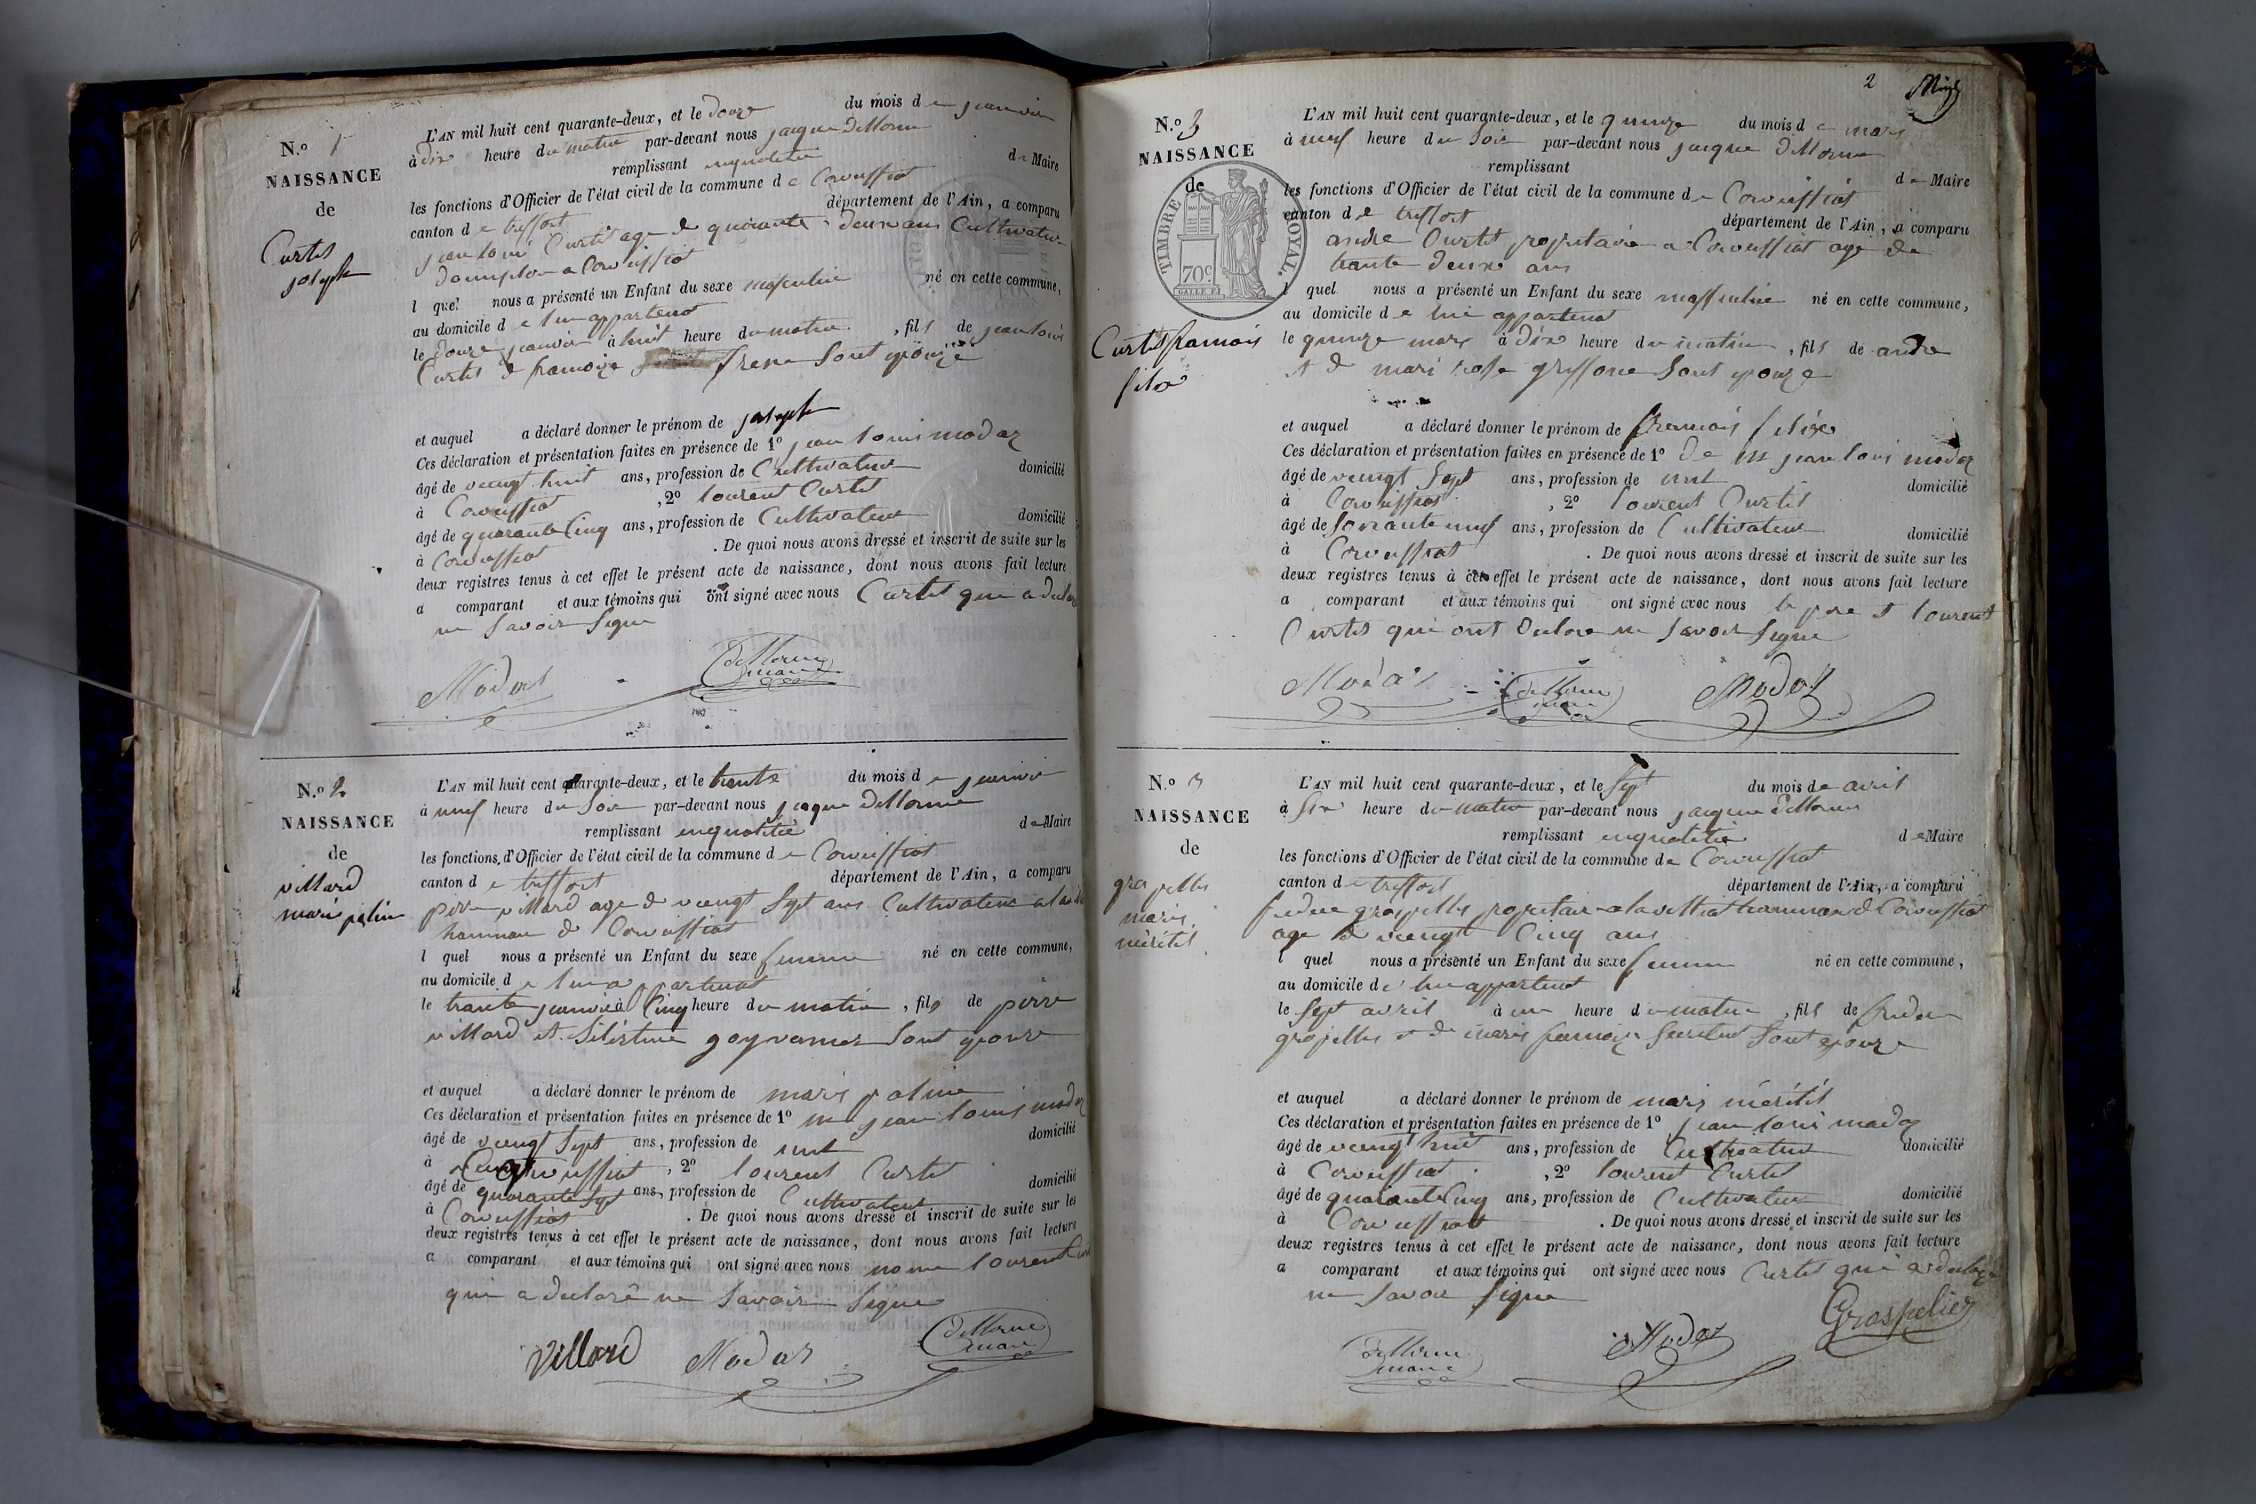 N.º 1
NAISSANCE
de
Curtis
joseph
L'AN mil huit cent quarante-deux, et le douze du mois de janvier
à dix heure du matin par-devant nous jacque dellorme
remplissant enqualité de Maire
les fonctions d'Officier de l'état civil de la commune de Corveissiat
canton de treffort département de l'Ain, a comparu
jean loui Curtis age de quarante deux ans Cultivateur
a Corveissiat
lequel nous a présenté un Enfant du sexe masculin né en cette commune,
au domicile de lui appartenat
le douze janvier à huit heure du matin, fils de jean louis
Curtis de françoize frene sont epouze
et auquel a déclaré donner le prénom de joseph
Ces déclaration et présentation faites en présence de 1º jean louis modas
âgé de veingt huit ans, profession de Cultivateur domicilié
à Corveissiat, 2º lourent Curtis
âgé de quarante Cinq ans, profession de Cultivateur domicilié
à Corveissiat. De quoi nous avons dressé et inscrit de suite sur les
deux registres tenus à cet effet le présent acte de naissance, dont nous avons fait lecture
a comparant et aux témoins qui ont signé avec nous Curtis qui a declare
ne savoir signe
Modas dellorme maire
N.º 2
NAISSANCE
de
villard
marie paline
L'AN mil huit cent quarante-deux, et le trente du mois de janvier
à neuf heure du soir par-devant nous jacque dellorme
remplissant enqualité de Maire
les fonctions d'Officier de l'état civil de la commune de Corveissiat
canton de treffort département de l'Ain, a comparu
pierre villard age de veingt sept ans Cultivateur
hammau de Corveissiat
lequel nous a présenté un Enfant du sexe femme né en cette commune,
au domicile de lui apartenat
le trante janvié à Cinq heure du matin, fils de pierre
villard et sélestine goyvannes sont epouze
et auquel a déclaré donner le prénom de marie paline
Ces déclaration et présentation faites en présence de 1º m jean louis modas
âgé de veingt sept ans, profession de domicilié
à Corveissiat, 2º lourent Curtis
âgé de quarante sept ans, profession de Cultivateur domicilié
à Corveissiat. De quoi nous avons dressé et inscrit de suite sur les
deux registres tenus à cet effet le présent acte de naissance, dont nous avons fait lecture
a comparant et aux témoins qui ont signé avec nous lourent
qui a declaré ne savoir signe
Villard Modas dellorme maire
2
N.º 3
NAISSANCE
de
TIMBRE ROYAL.
70c
Curtis franssois
felix
L'AN mil huit cent quarante-deux, et le quinze du mois de mars
à neuf heure du soir par-devant nous jacque dellorme
remplissant de Maire
les fonctions d'Officier de l'état civil de la commune de Corveissiat
canton de treffort département de l'Ain, a comparu
andre Curtis propritaire a Corveissiat age de
trante deux ans
lequel nous a présenté un Enfant du sexe massculin né en cette commune,
au domicile de lui appartenat
le quinze mars à dix heure du matin, fils de andre
et de mari rose griffone sont epouze
et auquel a déclaré donner le prénom de francois felix
Ces déclaration et présentation faites en présence de 1º de m jean louis modas
âgé de veingt sept ans, profession de domicilié
à Corveissiat, 2º lourent Curtis
âgé de ans, profession de Cultivateur domicilié
à Corveissiat. De quoi nous avons dressé et inscrit de suite sur les
deux registres tenus à cet effet le présent acte de naissance, dont nous avons fait lecture
a comparant et aux témoins qui ont signé avec nous le pere et lourent
Curtis qui ont declare ne savoir signe
Modas dellorme maire Modas
N.º 3
NAISSANCE
de
grospellis
marie
méritis
L'AN mil huit cent quarante-deux, et le sept du mois de avril
à six heure du matin par-devant nous jacque dellorme
remplissant enqualité de Maire
les fonctions d'Officier de l'état civil de la commune de Corveissiat
canton de treffort département de l'Ain, a comparu
grospellis propritaire hammau de Corveissiat
age de veingt Cinq ans
lequel nous a présenté un Enfant du sexe femme né en cette commune,
au domicile de lui appartenat
le sept avril à une heure du matin, fils de
grospellis et de marie sont epouze
et auquel a déclaré donner le prénom de marie méritis
Ces déclaration et présentation faites en présence de 1º jean louis modas
âgé de veingt huit ans, profession de Cultivateur domicilié
à Corveissiat, 2º lourent Curtis
âgé de quarante Cinq ans, profession de Cultivateur domicilié
à Corveissiat. De quoi nous avons dressé et inscrit de suite sur les
deux registres tenus à cet effet le présent acte de naissance, dont nous avons fait lecture
a comparant et aux témoins qui ont signé avec nous Curtis qui a declare
ne savoir signe
dellorme maire Modas Grospelier